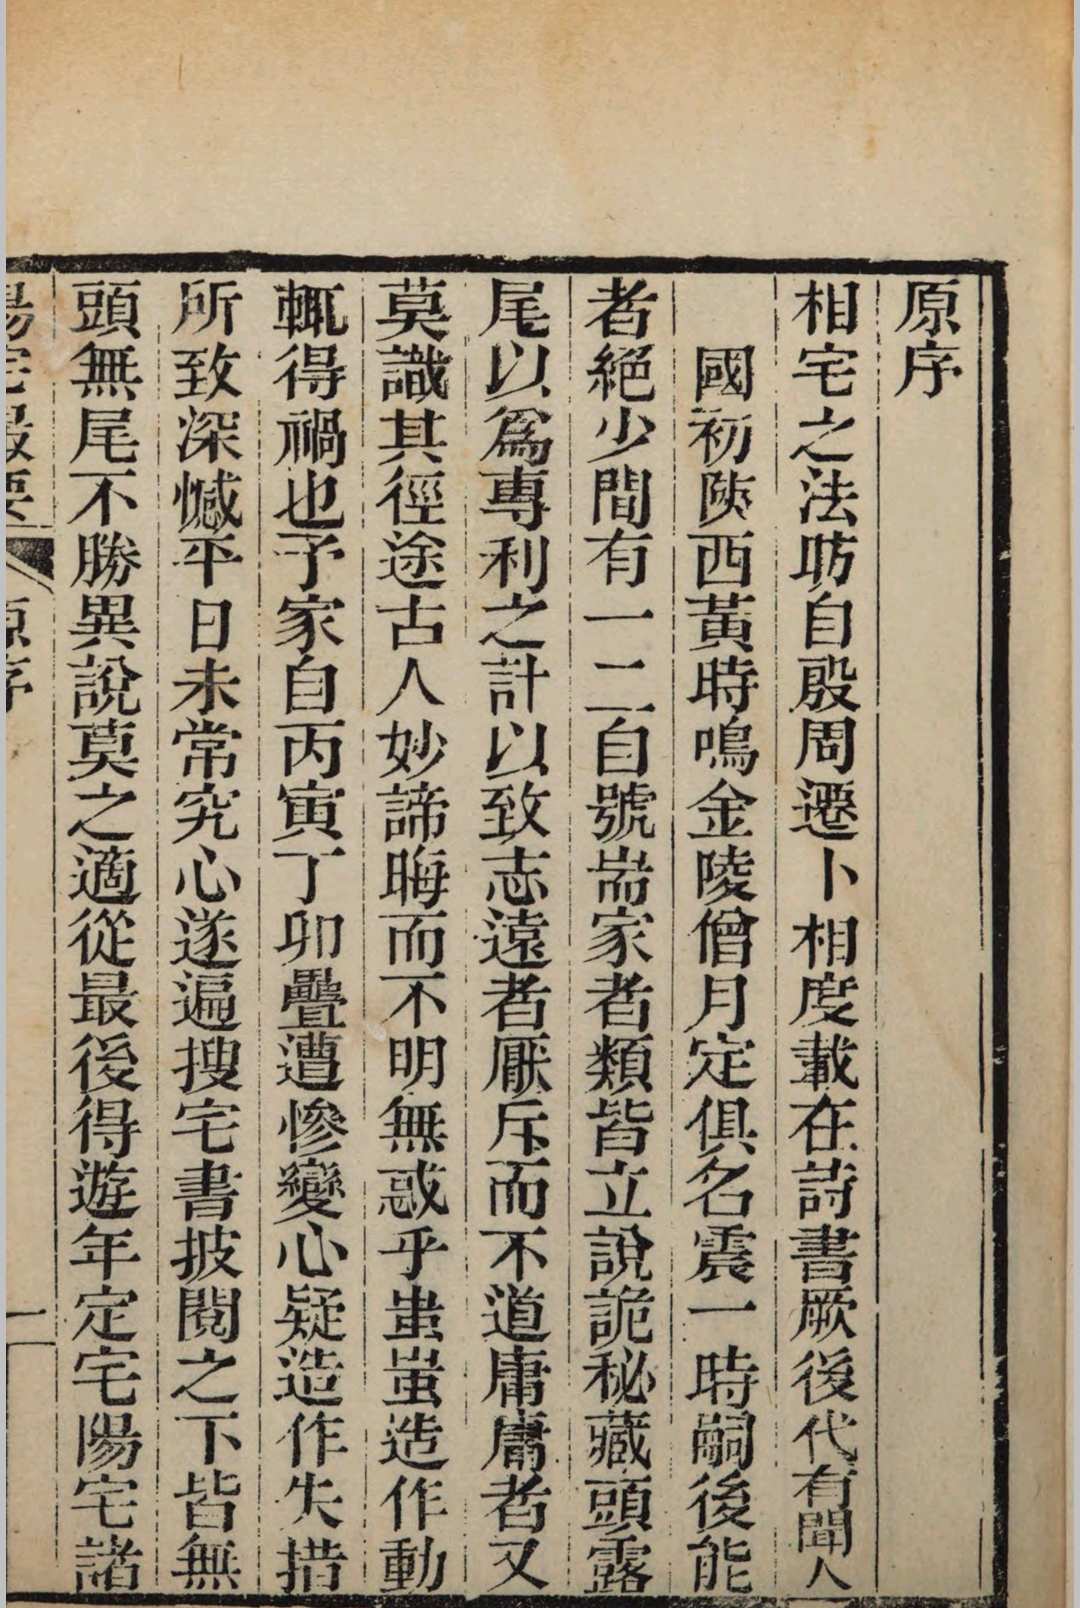 原序
相宅之法昉自殷周遷卜相度載在詩書厥後代有聞人
國初陝西黃時鳴金陵僧月定俱名震一時嗣後能
者絕少間有一二自號耑家者類皆立說詭秘藏頭露
尾以為專利之計以致志遠者厭斥而不道庸庸者又
莫識其徑途古人妙諦晦而不明無惑乎蚩蚩造作動
輒得禍也予家自丙寅丁卯疊遭慘變心疑造作失措
所致深憾平日未常究心遂遍搜宅書披閱之下皆無
頭無尾不勝異說莫之適從最後得遊年定宅陽宅諸
陽宅最要 原序 一